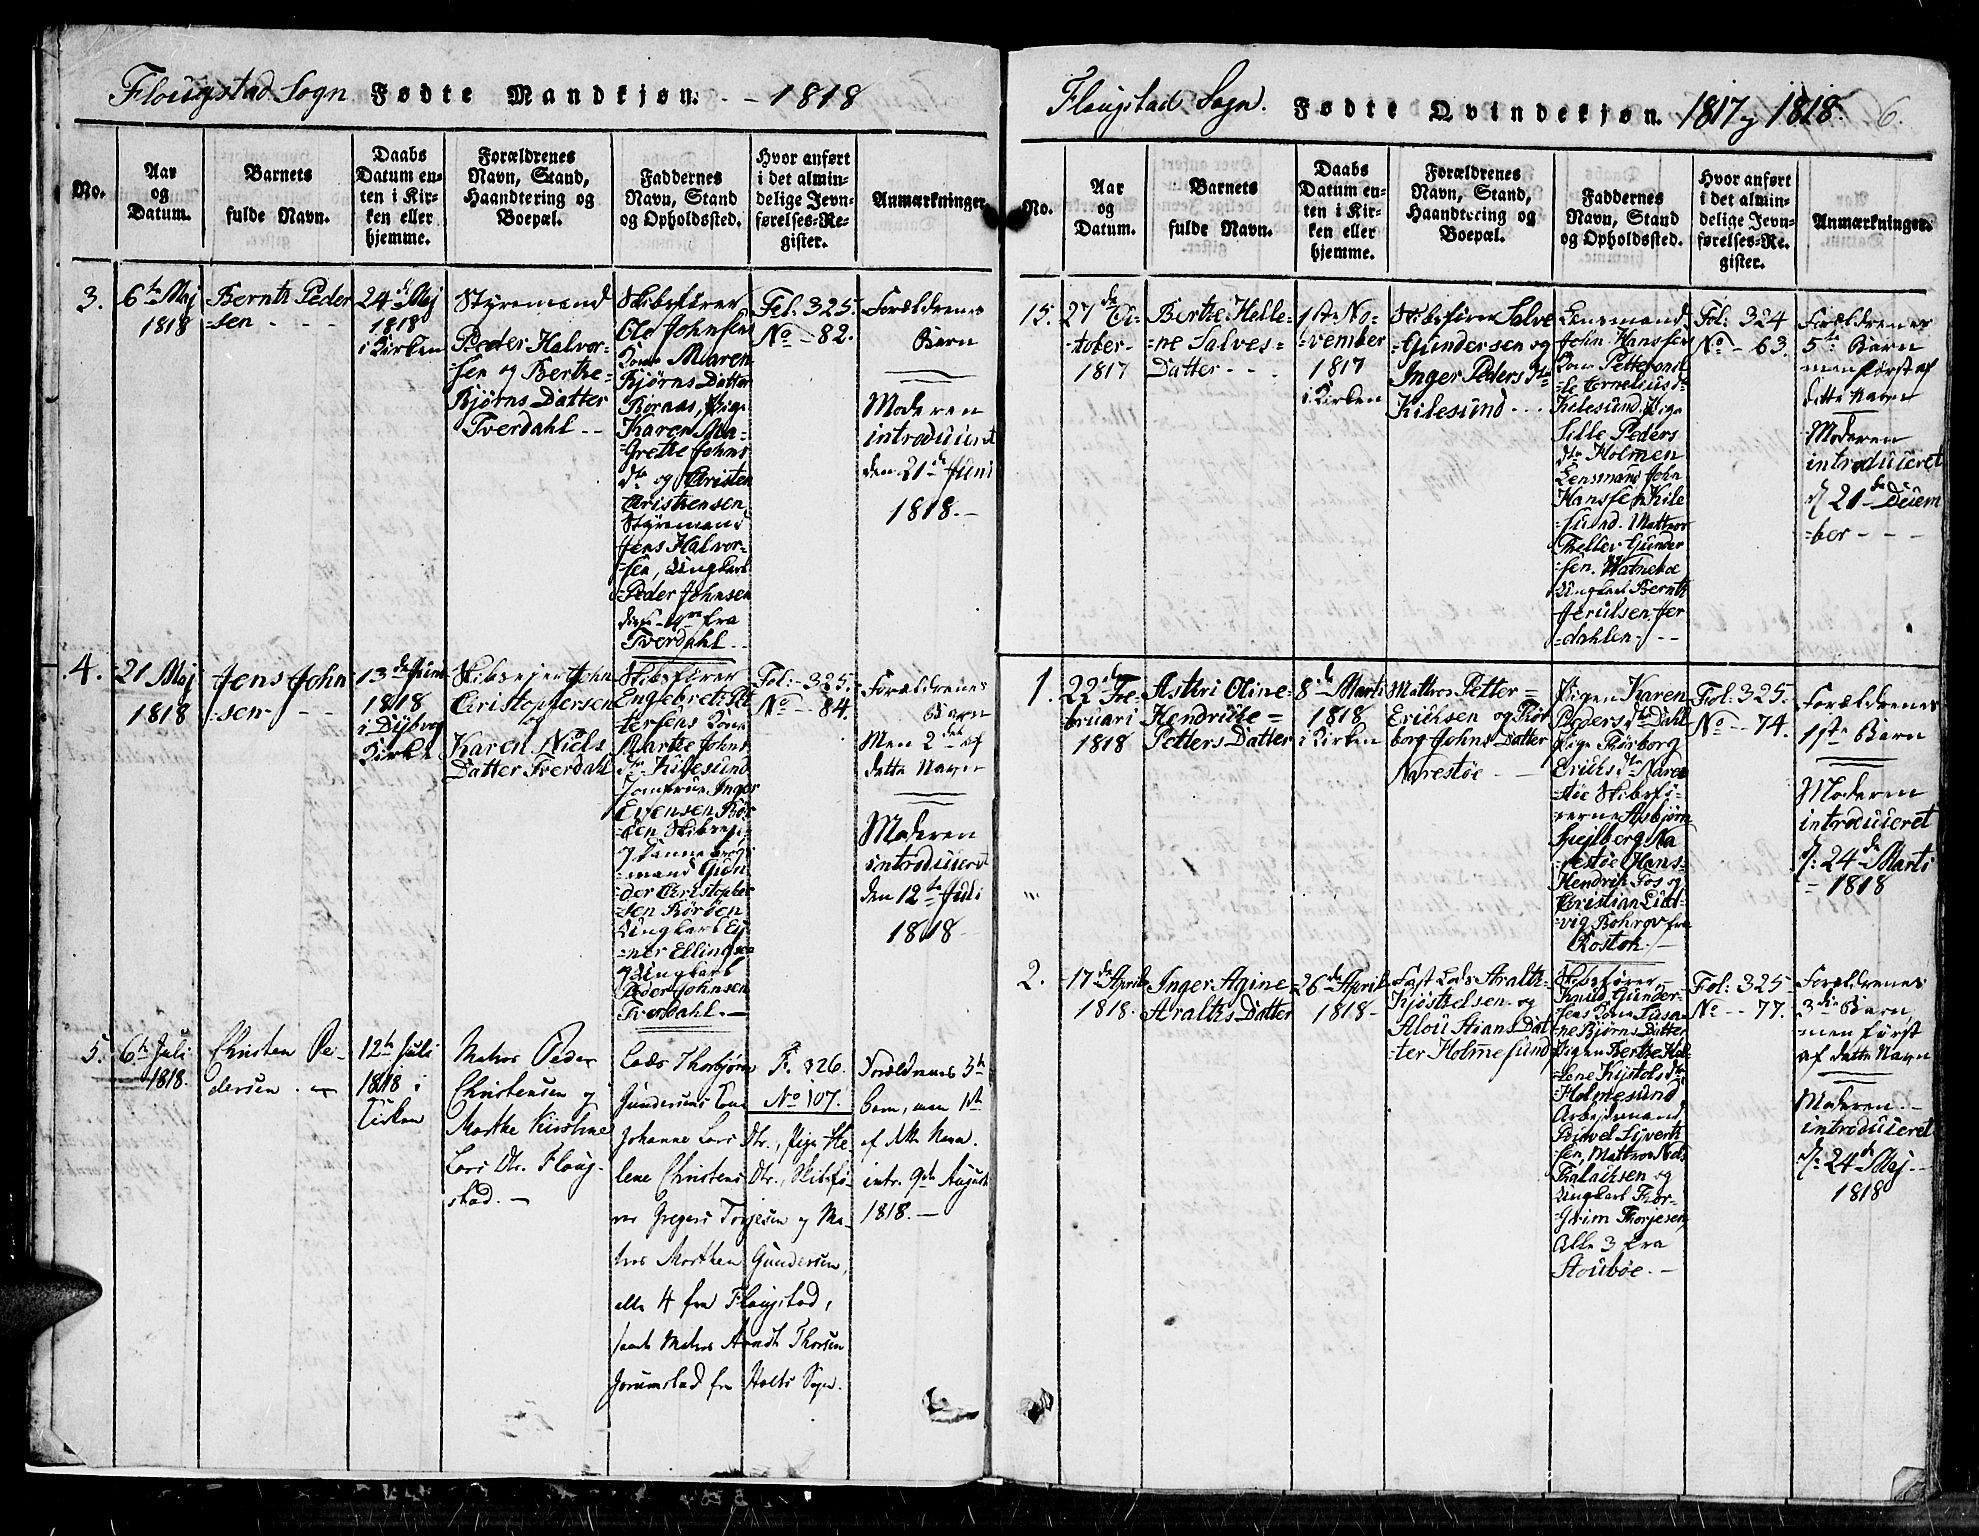 Flougstad Sogn Fødte Mandkjøn. - 1818
No.
Aar
og
Datum.
Barnets
fulde Navn.
Daabs
Datum en-
ten i Kir-
ken eller
hjemme.
Forældrenes
Navn, Stand,
Haandtering og
Boepæl.
Faddernes
Navn, Stand
og Opholdssted.
Hvor anført
i det almin-
delige Jevn-
førelses-Re-
gister.
Anmærkninger
3.
6te Maj
1818
Bernth Peder
=sen - - -
24de Maj
1818
i Kirken
Styremand
Peder Halvor-
sen og Berthe
Bjørns Datter
Tverdahl - -
Skibsfører
Ole Johnsens
Kone Maren
Bjørns Datter
Børnæs, Pige
Karen Ma-
Grethe Johns
dtr og Christen
Christensen
Styremand
Jens Halvor-
sen, Ungkarl
Peder Johnsen
fra
Tverdahl. -
Fol: 325.
No - 82.
Forældrenes
Barn
Moderen
introduceret
den 21de Juni
1818. -
4.
21 Maj
1818
Jens John
=sen - -
13de Juni
1818
i Dybvog
Kirke
Skibsejer John
Christophersen
og
Karen Niels
Datter Tverdahl
Skibsfører
Engebret Pet
tersens Kone
Marthe Johns
dtr Kilesund
Jomfrue Inger
Evensen Bor
=øen Skibsej:
og Danne brogs
=mand Gun
der Christopher
sen Børøen
Ungkarl Ej
=ner Ellingsen
og Ungkarl
Peder Johnsen
Tverdahl. -
Fol: 325.
No - 84.
Forældrenes
Barn
Men 2det af
dette Navn
Moderen
introduceret
den 12te Juli
1818 -
5.
6te Juli
1818.
Christen Pe-
dersen. -
12te Juli
1818 i
Kirken
Matros Peder
Christensen og
Marthe Kirstine
Lars Dtr. Floug-
stad. -
Lods Thorbjørn
Gundersens Kone
Johanne Lars Dtr., Pige He-
lene Christens Dtr., Skibsfø-
rer Gregers Torjesen og Ma-
tros Morthen Gundersen,
alle 4 fra Flougstad,
samt Matros Arndt Thorsen
Goumstad fra Holts Sogn.
F. 326.
No 107.
Forældrenes 3te
barn, men 1ste
af dette Navn.
intr. 9de August
1818. -
Flougstad Sogn. Fødte Qvindekjøn. 1817 og 1818. 6.
No.
Aar
og
Datum.
Barnets
fulde Navn.
Daabs
Datum en-
ten i Kir-
ken eller
hjemme.
Forældrenes
Navn, Stand,
Haandtering og
Boepæl.
Faddernes
Navn, Stand
og Opholdssted.
Hvor anført
i det almin-
delige Jevn-
førelses-Re-
gister.
Anmærkninger.
15.
27de Oc-
=tober-
=1817
Berthe Helle-
=ne Salves=
Datter - - -
1ste No-
=vember
1817
i Kirken
Skibsfører Salve
Gundersen og
Inger Peders dtr
Kilesund - - -
Lensmand
John Hanssens
Kone
Cornelius d=
Kilesund, Pige
Sille Peders
dtr Holmen
Lensmand John
Hanssen Kile
=sund. Mattros
Theller Gunder
=sen.
Ungkarl Bernth
Jer
=dahlen. - -
Fol: 324
No - 63.
Forældrenes
5te Barn
men først af
dette Navn
Moderen
introduceret
d: 21de Decem
=ber - - -
1.
22de Fe-
bruari
1818
Asthri Oline-
Hendricke=
Petters Datter
8de Marti
1818
i Kirken
Mattros Petter=
Ericksen og Thor
borg Johns Datter
Narestøe - -
Pigen Karen
Peders dtr Dahl
Pige Thorborg
Ericks dtr Nares
=tøe Skibsfø-
=rerne Asbjørn
Spejlberg Na
=restøe Hans
Hendrik Fos og
Christian Lud-
=vig Bohrov fra
Rostok. -
Fol: 325.
No - - 74.
Forældrenes
1ste Barn
Moderen
introduceret
d: 24de Marti
- 1818
2.
17de April
1818.
Inger Agine=
Aralths Datter
26de April
1818 -
Fast Lods Aralth
Kjøstelsen og
Alou Stians Dat
=ter Holmesund
Skibsfører
Knud Gunder-
sens Kone Susa
=ne Bjørns Datter
Pigen Berthe Hel-
=lene Kjøstels dtr
Holmesund
Arbejdsmand
Sijvert
sen, Mattros Niels
og
Ungkarl Thor-
=Grim Thorjesen
Alle 3 fra
Stoubøe. -
Fol: 325
No - - 77.
Forældrenes
3die Barn
men først
af dette Navn
Moderen. -
introduceret
d: 24de Maj -
1818